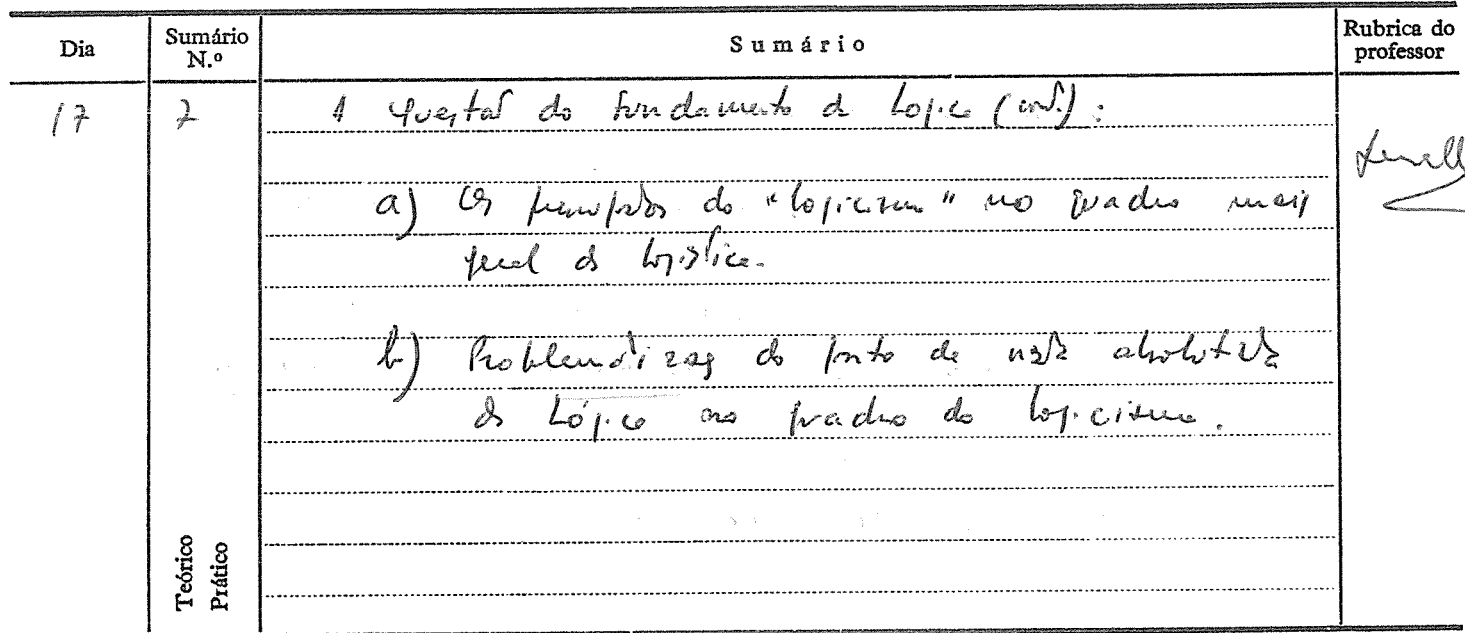 Dia
Sumário N.º
Sumário
Rubrica do professor
17
7
A questão do fundamento da Lógica (cont.):
a) Os princípios do "logicismo" no quadro mais
geral da logística.
b) Problematização do ponto de vista absolutista
da Lógica no quadro do logicismo.
Teórico
Prático